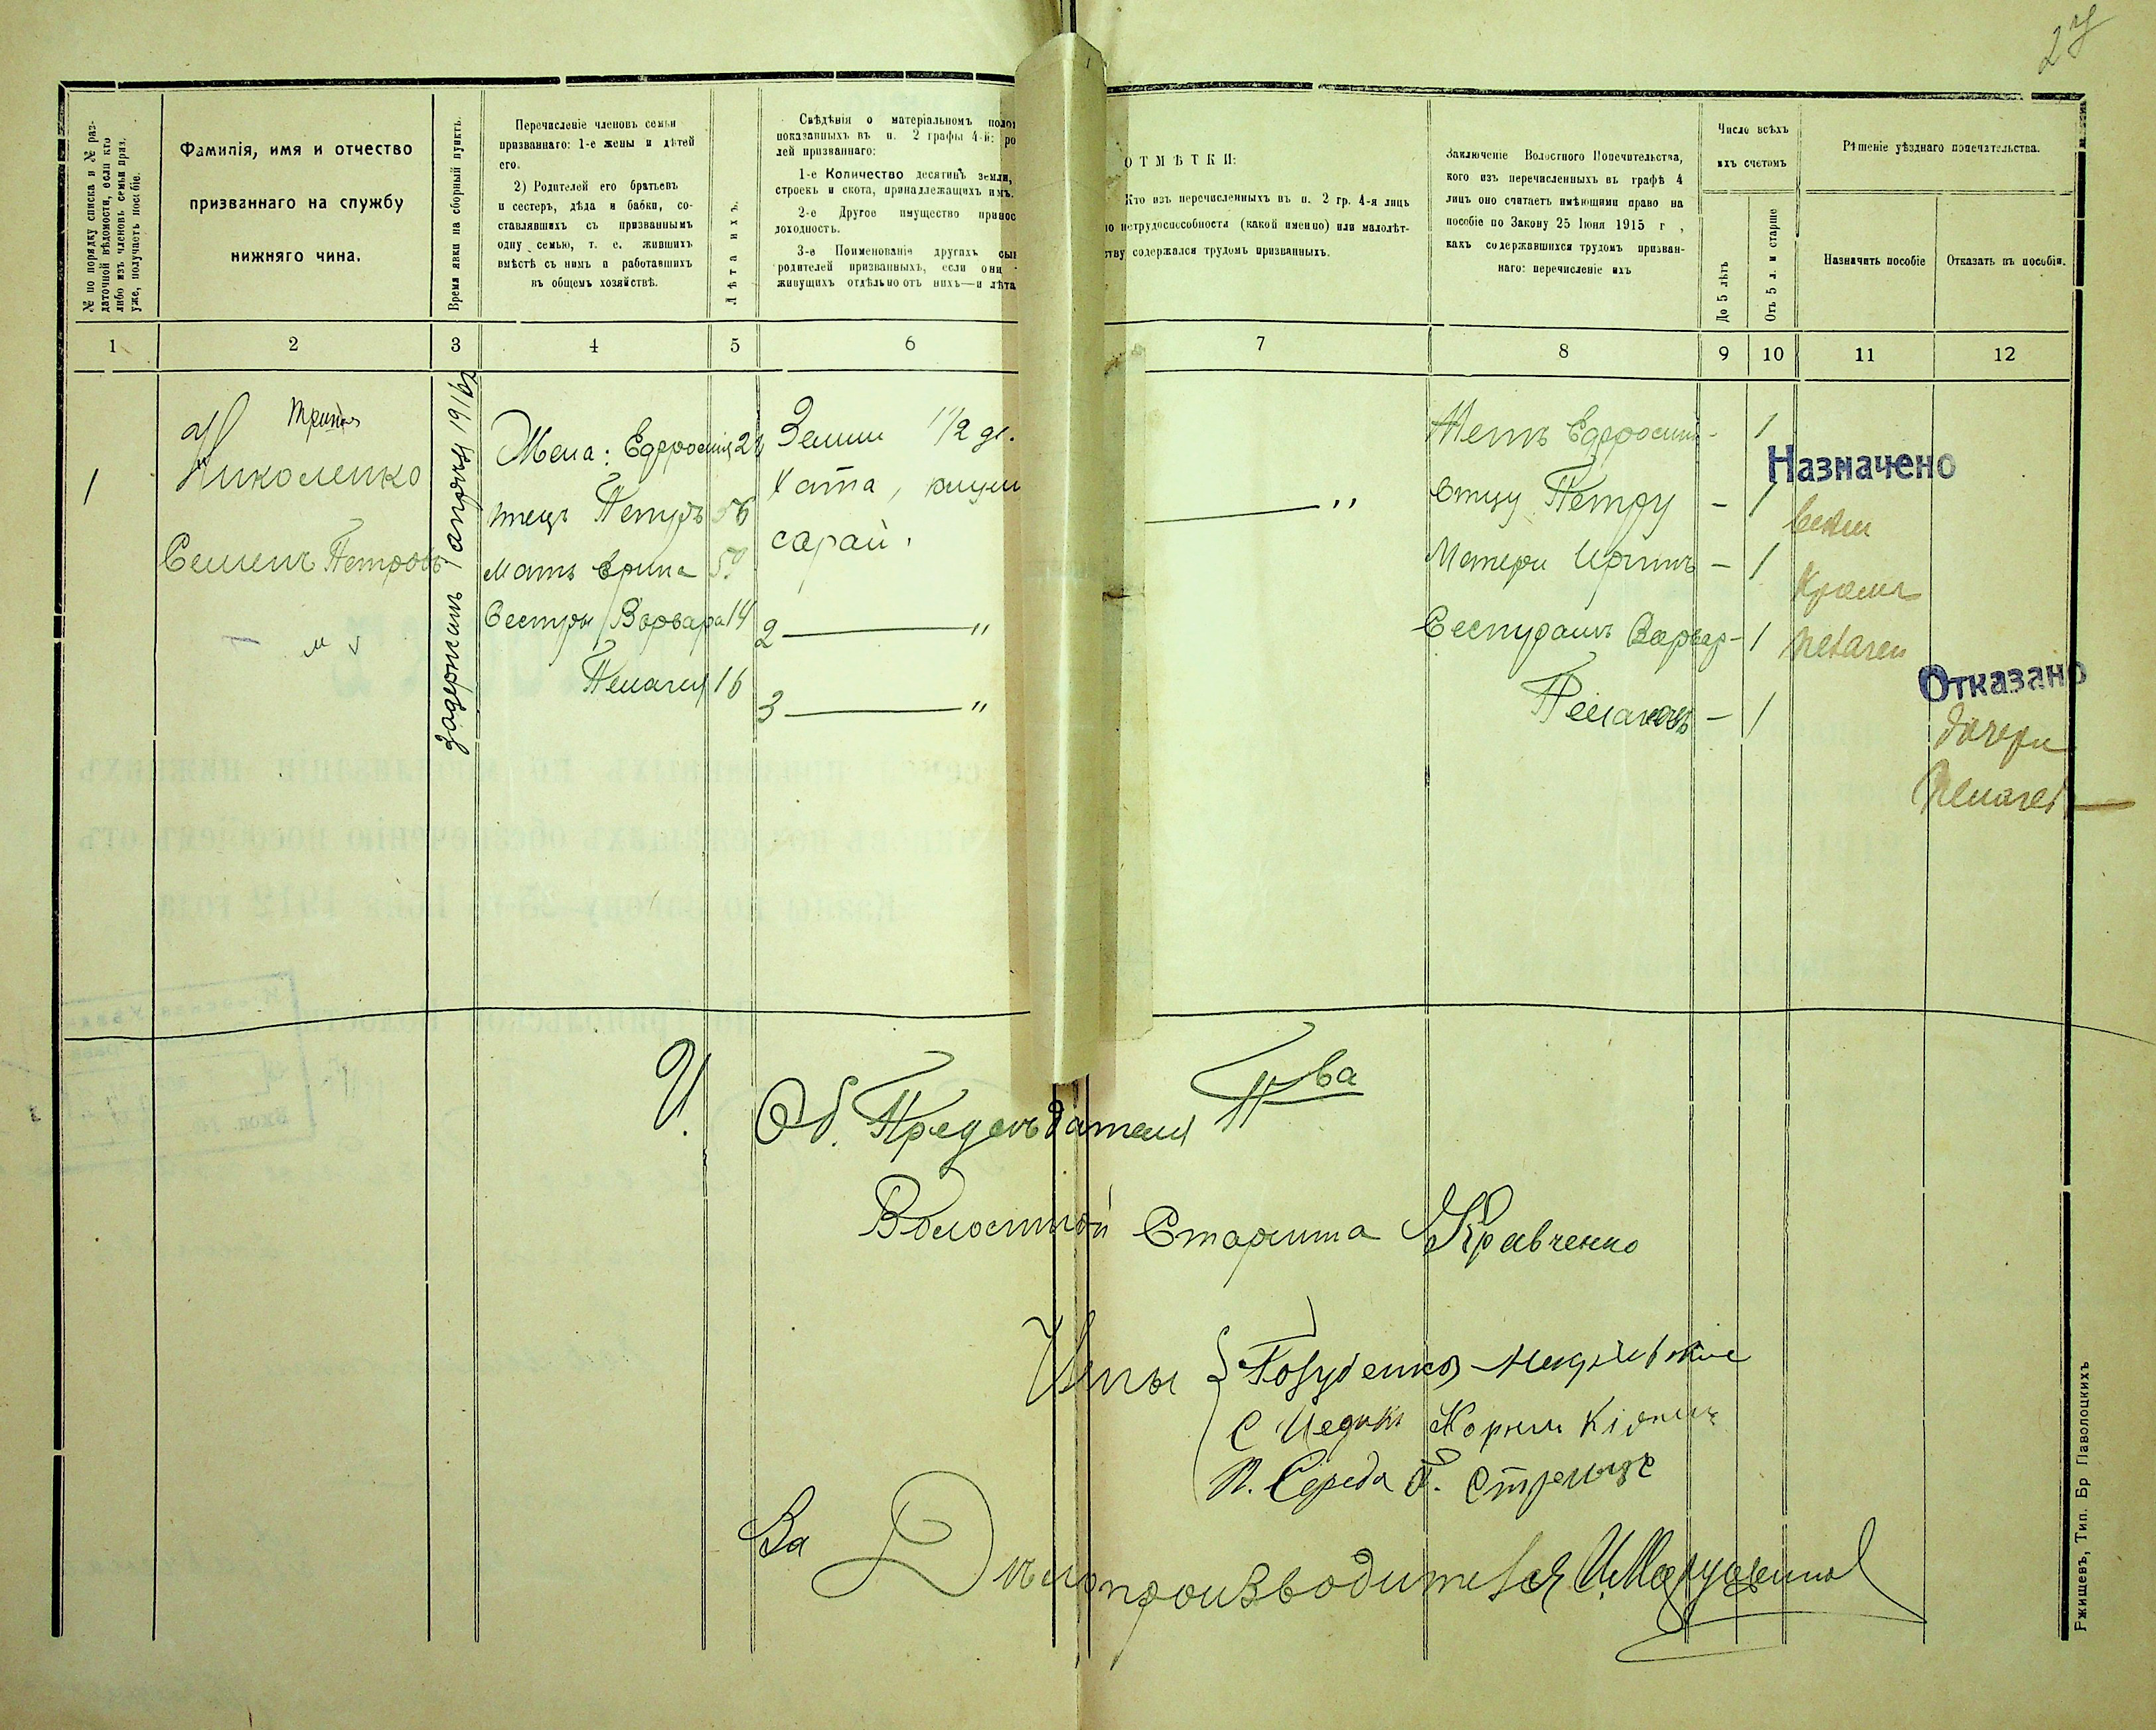 27
№ по порядку списка и № раз-
даточной вѣдомости, если кто
либо изъ членовъ семьи приз.
уже, получаетъ пособіе.
Фамилія, имя и отчество
призваннаго на службу
нижняго чина.
Время явки на сборный пунктъ.
Перечисленіе членовъ семьи
призваннаго: 1-е жены и дѣтей
его.
2) Родителей его братьевъ
и сестеръ, дѣда и бабки, со-
ставлявшихъ съ призваннымъ
одну семью, т. е. жившихъ
вмѣстѣ съ нимъ и работавшихъ
въ общемъ хозяйствѣ.
Лѣта ихъ.
Свѣдѣнія о матеріальномъ поло
показанныхъ въ п. 2 графы 4-й: ро
лей призваннаго:
1-е Количество десятинъ земли,
строекъ и скота, принадлежащихъ имъ.
2-е Другое имущество принос
доходность.
3-е Поименованіе другихъ сын
родителей призванныхъ, если они
живущихъ отдѣльно отъ нихъ—и лѣта
ОТМѢТКИ:
Кто изъ перечисленныхъ въ п. 2 гр. 4-я лицъ
по нетрудоспособности (какой именно) или малолѣт-
ству содержался трудомъ призванныхъ.
Заключеніе Волостного Попечительства,
кого изъ перечисленныхъ въ графѣ 4
лицъ оно считаетъ имѣющими право на
пособіе по Закону 25 Іюня 1915 г.,
какъ содержавшихся трудомъ призван-
наго: перечисленіе ихъ
Число всѣхъ
ихъ счетомъ
До 5 лѣтъ
Отъ 5 л. и старше
Рѣшеніе уѣзднаго попечительства.
Назначить пособіе
Отказать въ пособіи.
1 2 3 4 5 6 7 8 9 10 11 12
1
Николенко
Семенъ Петровъ
задержанъ 1 апрѣля 1916
Жена: Ефросинія 21
Отецъ Петръ 56
Мать Ирина
Сестры Варвара 14
Пелагія 16
Земли 1 1/2 де.
Хата,
сарай.
2 — "
3 — "
— "
Женѣ Ефросиніи - 1
Отцу Петру - 1
Матери Иринѣ - 1
Сестрамъ Варвар - 1
Пелагеѣ - 1
Назначено
всѣмъ
кромѣ
Пелагеи
Отказано
дочери
Пелагеѣ
И. Об. Предсѣдателя П-ва
Волостной Старшина Кравченко
Члены
П. Середа
За Дѣлопроизводителя
Ржищевъ, Тип. Бр Паволоцкихъ